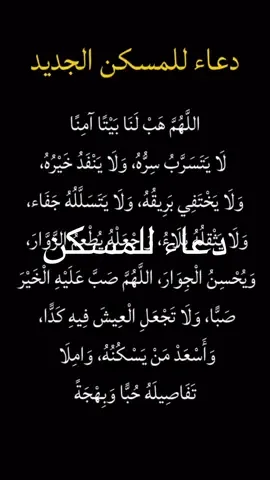 دعاء للمسكن الجديد
اللَّهُمَّ هَبْ لَنَا بَيْتًا آمِنًا
لَا يَتَسَرَّبُ سِرُّهُ، وَلَا يَنْفَدُ خَيْرُهُ،
وَلَا يَخْتَفِي بَرِيقُهُ، وَلَا يَتَسَلَّلُهُ جَفَاء،
دعاء للمسكن
وَيُحْسِنُ الْجِوَارَ، اللَّهُمَّ صَبَّ عَلَيْهِ الْخَيْرَ
صَبًّا، وَلَا تَجْعَلِ الْعِيشَ فِيهِ كَدًّا،
وَأَسْعَدْ مَنْ يَسْكُنُهُ، وَامِلَا
تَفَاصِيلَهُ حُبًّا وَبِهْجَةً